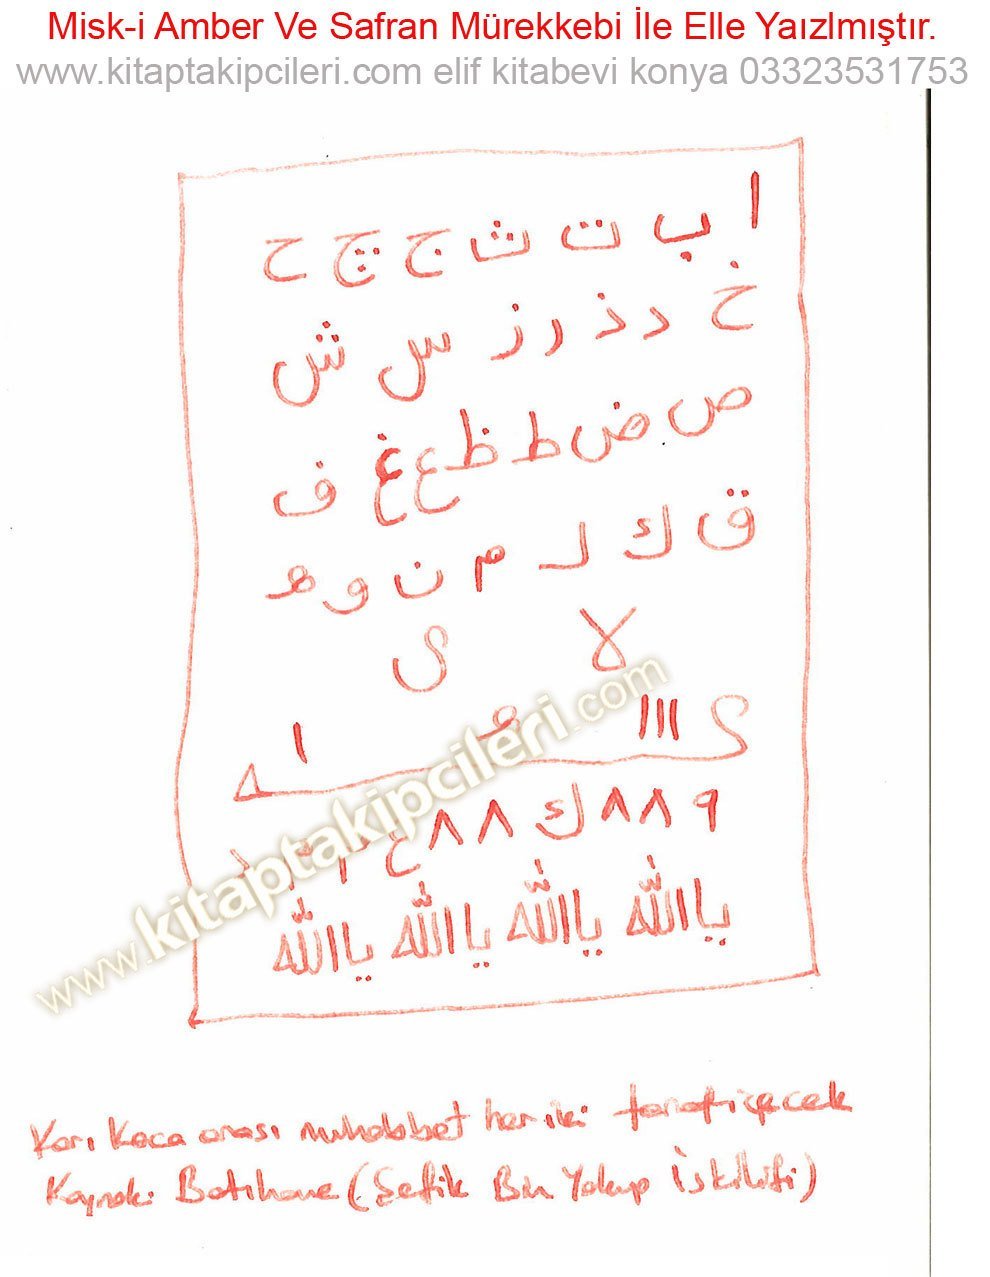 Misk-i Amber Ve Safran Mürekkebi İle Elle Yaızlmıştır.
www.kitaptakipcileri.com elif kitabevi konya 03323531753
ا ب ت ث ج چ ح
خ د ذ ر ز س ش
ص ض ط ظ ع غ ف
ق ك ل م ن و ه
لا ى
ااا ه ا
٩ ٨ ٨ ك ٨ ٨ ع
يا الله يا الله يا الله يا الله
www.kitaptakipcileri.com
Karı Koca arası muhabbet her iki taraf içecek
Kaynak: Batıhane (Şefik Bin Yakup İskilifi)